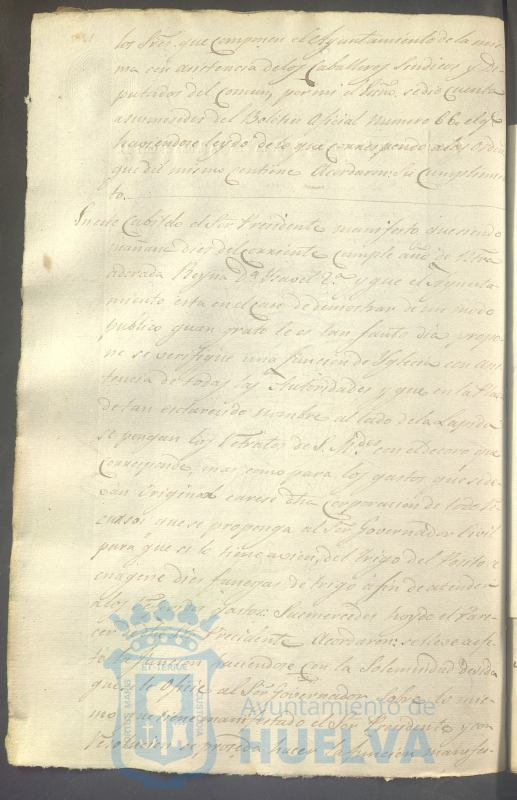 los Sres. que componen el Ayuntamiento de la mis-
ma con asistencia de los Caballeros Sindicos y Di-
putados del Comun, por mi el Esno. se dio cuenta
a sus mercedes del Boletin Oficial numero 66, el qe.
haviendose leydo de lo que corresponde a las Ordens.
que del mismo contiene Acordaron: Su Cumplimien
to.
En este Cabildo el Sor. Presidente manifesto que siendo
mañana dies del corriente cumple año de Ntra.
adorada Reyna Da. Ysavel 2a. y que el Ayunta-
miento esta en el caso de demostrar de un modo
publico quan grato le es tan fausto dia propo-
ne se verifique una funcion de Yglesia con asis-
tencia de todas las Autoridades y que en la Plaza
de tan esclarecido nombre al lado de la Lapida
se pongan los Retratos de S. Mdes. con el Decoro que
corresponde, mas como para los gastos que se de-
van Originar carese dha. Corporacion de todo re-
curso que se proponga al Sor. Governador Civil
para que si lo tiene a vien, del Trigo del Posito se
enagene dies fanegas de trigo a fin de atender
a los gastos: Sus mercedes hoydo el Pare-
cer Presidente Acordaron: se lleve a efe-
to la funcion haciendose con la Solemnidad devida
que se le Oficie al Sor. Governador sobre lo mis-
mo que tiene manifestado el Sor. Presidente y con
Resolucion se proseda hacer la funcion manifes-
ET TERRÆ
PORTUS MARIS
CUSTODIA
Ayuntamiento de
HUELVA